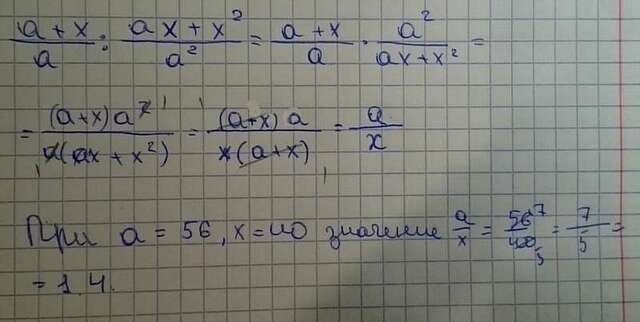 (a+x)/a : (ax+x²)/a² = (a+x)/a · a²/(ax+x²) =
= (a+x)a²/(a(ax+x²)) = (a+x)a/(x(a+x)) = a/x
При a = 56, x = 40 значение a/x = 56/40 = 7/5 =
= 1,4.